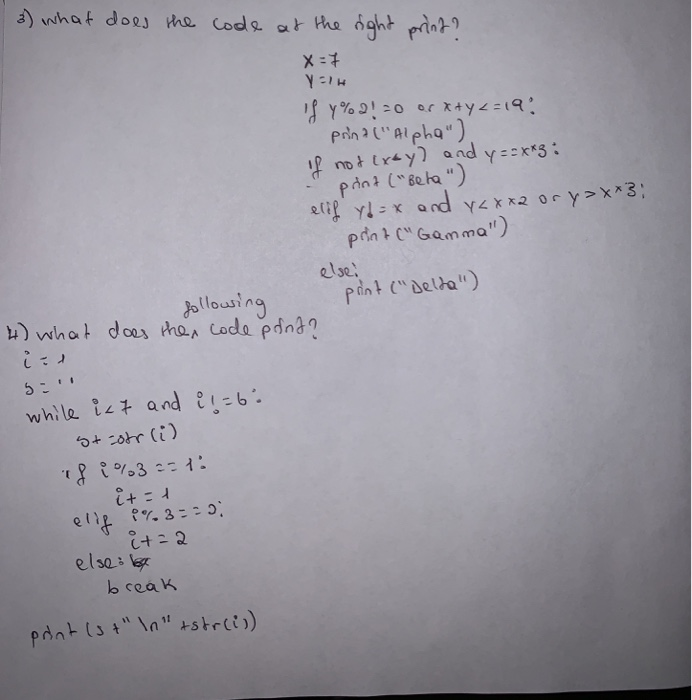 3) what does the code at the right print?
X=7
Y=14
if y%2!=0 or x+y<=19:
print("Alpha")
if not (x<y) and y==x**3:
print("Beta")
elif y!=x and y<x**2 or y>x**3:
print("Gamma")
else:
print("Delta")
following
4) what does the code print?
i=1
s=''
while i<7 and i!=6:
s+=str(i)
if i%3==1:
i+=1
elif i%3==2:
i+=2
else:
break
print(s+"\n"+str(i))